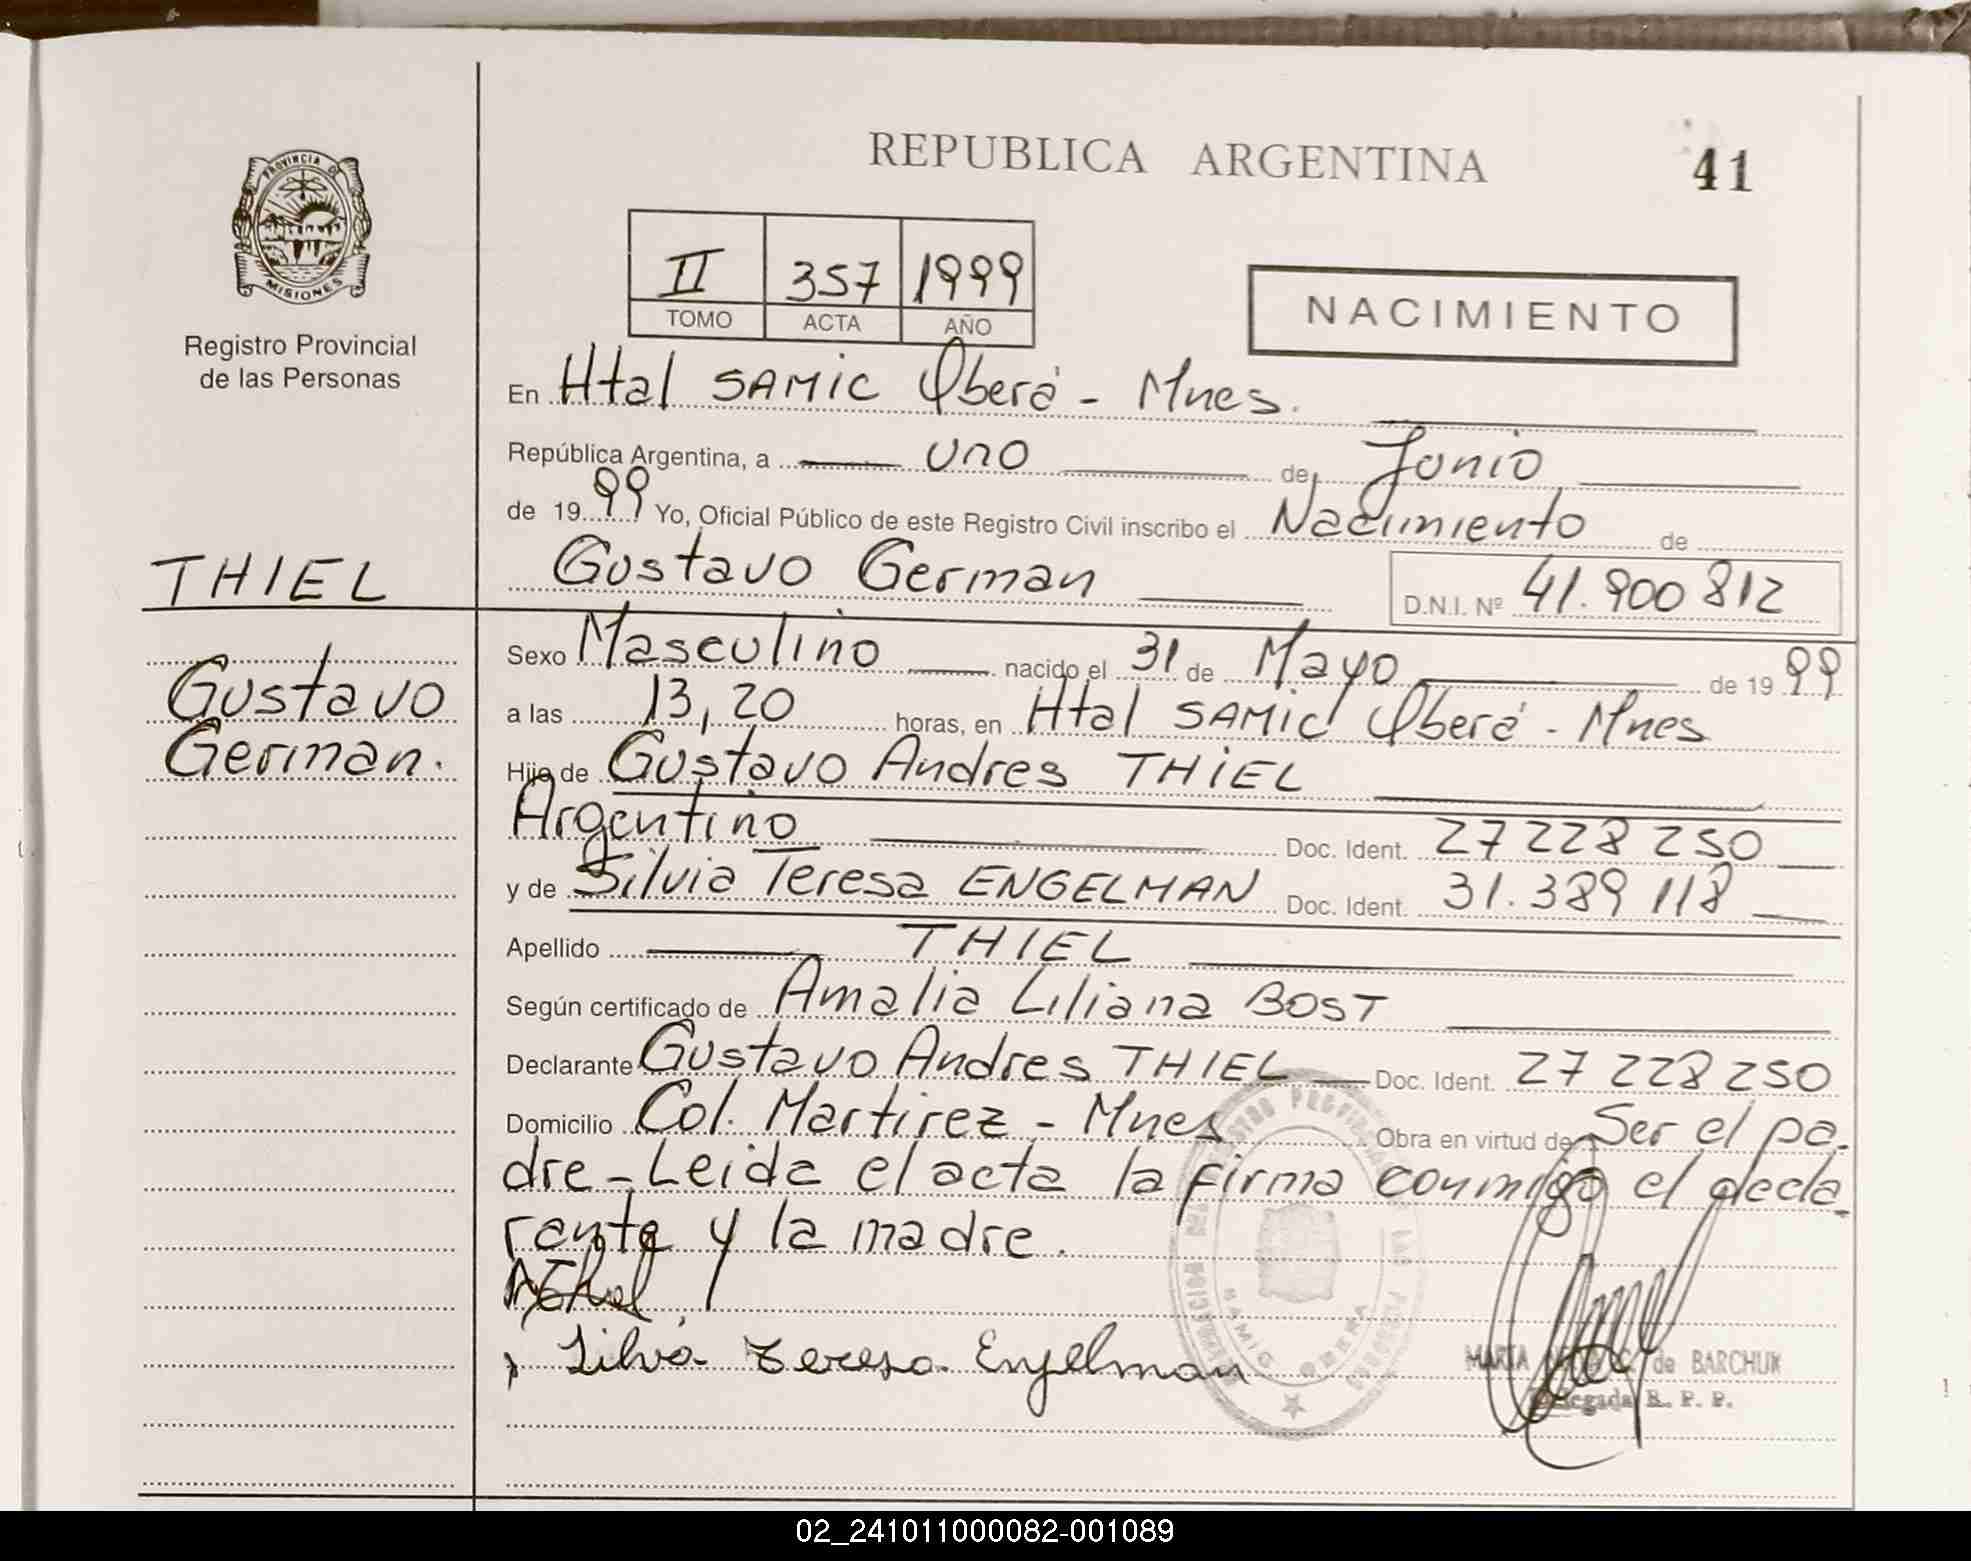 REPUBLICA ARGENTINA
41
PROVINCIA DE
MISIONES
Registro Provincial
de las Personas
II 357 1999
TOMO ACTA AÑO
NACIMIENTO
En Htal SAMIC Oberá - Mnes.
República Argentina, a uno de Junio
de 1999 Yo, Oficial Público de este Registro Civil inscribo el Nacimiento de
THIEL
Gustavo German D.N.I. Nº 41.900 812
Gustavo
German.
Sexo Masculino nacido el 31 de Mayo de 1999
a las 13,20 horas, en Htal SAMIC Oberá - Mnes
Hijo de Gustavo Andres THIEL
Argentino Doc. Ident. 27 228 250
y de Silvia Teresa ENGELMAN Doc. Ident. 31.389 118
Apellido THIEL
Según certificado de Amalia Liliana BOST
Declarante Gustavo Andres THIEL Doc. Ident. 27 228 250
Domicilio Col. Martirez - Mnes Obra en virtud de Ser el pa-
dre - Leida el acta la firma conmigo el decla
rante y la madre.
Silvia Teresa Engelman
SAMIC OBERA
MARTA de BARCHUK
Delegada R. P. P.
02_241011000082-001089